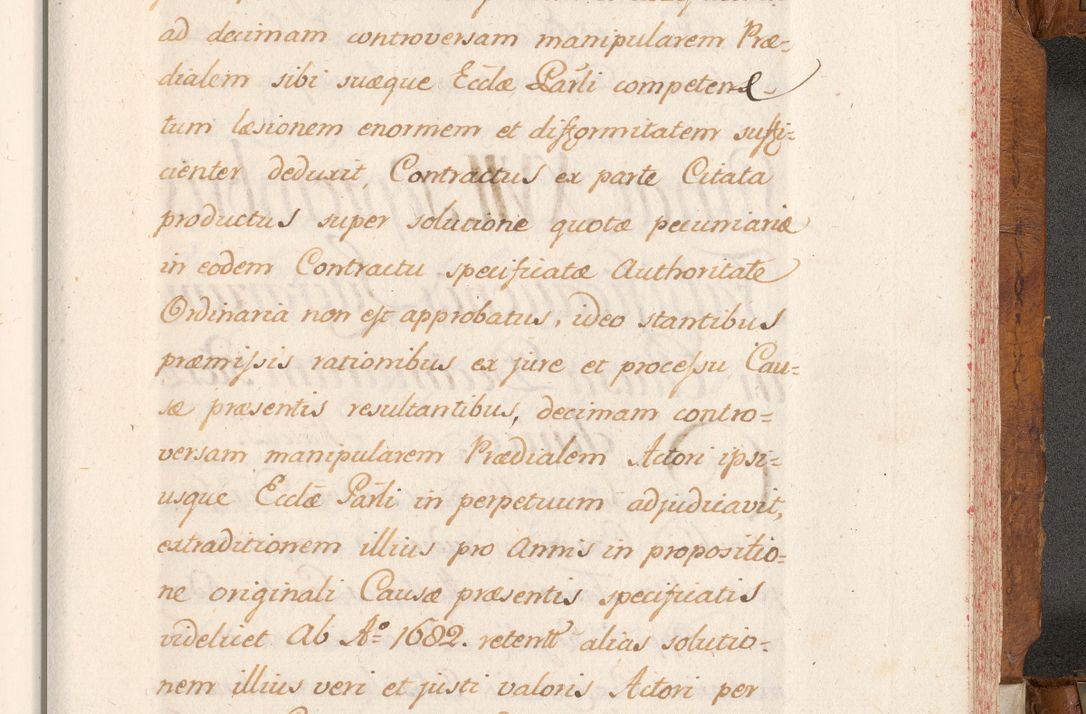 ad decimam controversam manipularem Præ-
dialem sibi suæque Eccłæ Parłi competen-
tum læsionem enormem et difformitatem suffi-
cienter deduxit, Contractus ex parte Citata
productus super solutione quotæ pecuniariæ
in eodem Contractu specificatæ Authoritate
Ordinaria non est approbatus, ideo stantibus
præmissis rationibus ex jure et processu Cau-
sæ præsentis resultantibus, decimam contro-
versam manipularem Prædialem Actori ipsi-
usque Eccłæ Parłi in perpetuum adjudicavit,
extraditionem illius pro Annis in propositio-
ne originali Causæ præsentis specificatis
videlicet Ab Aº 1682. retent alias solutio-
nem illius veri et justi valoris Actori per